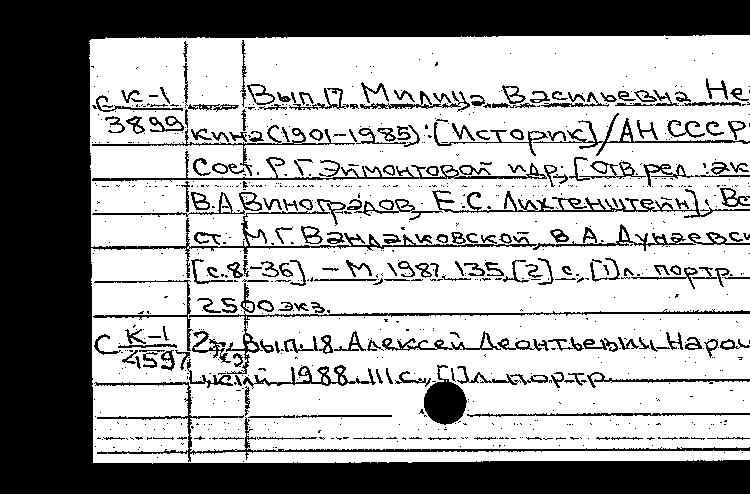 с К-1 Вып.17 Милица Васильевна Не
3899 кина (1901-1985) : [Историк] / АН СССР
Сост. Р.Г. Эймонтовой и др; [Отв ред : ак
В.А Виноградов, Е.С. Лихтенштейн]; Вс
ст. М.Г. Вандалковской, В.А. Дунаевск
[с.8-36]. – М, 1987. 135, [2] с, [1] л. портр
2500 экз.
С К-1 Вып. 18. Алексей Леонтьевич Нароч
4597 цкий 1988. 111 с., [1] л. портр.